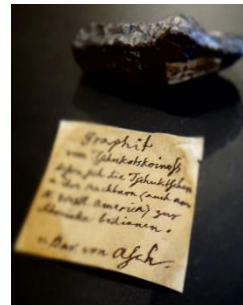 Graphit
vom Tschukotskoinoss
dessen sich die Tschuktschen
u. ihre Nachbarn (auch von
N. West America) zur
Schminke bedienen.
v. Bar. von Asch.